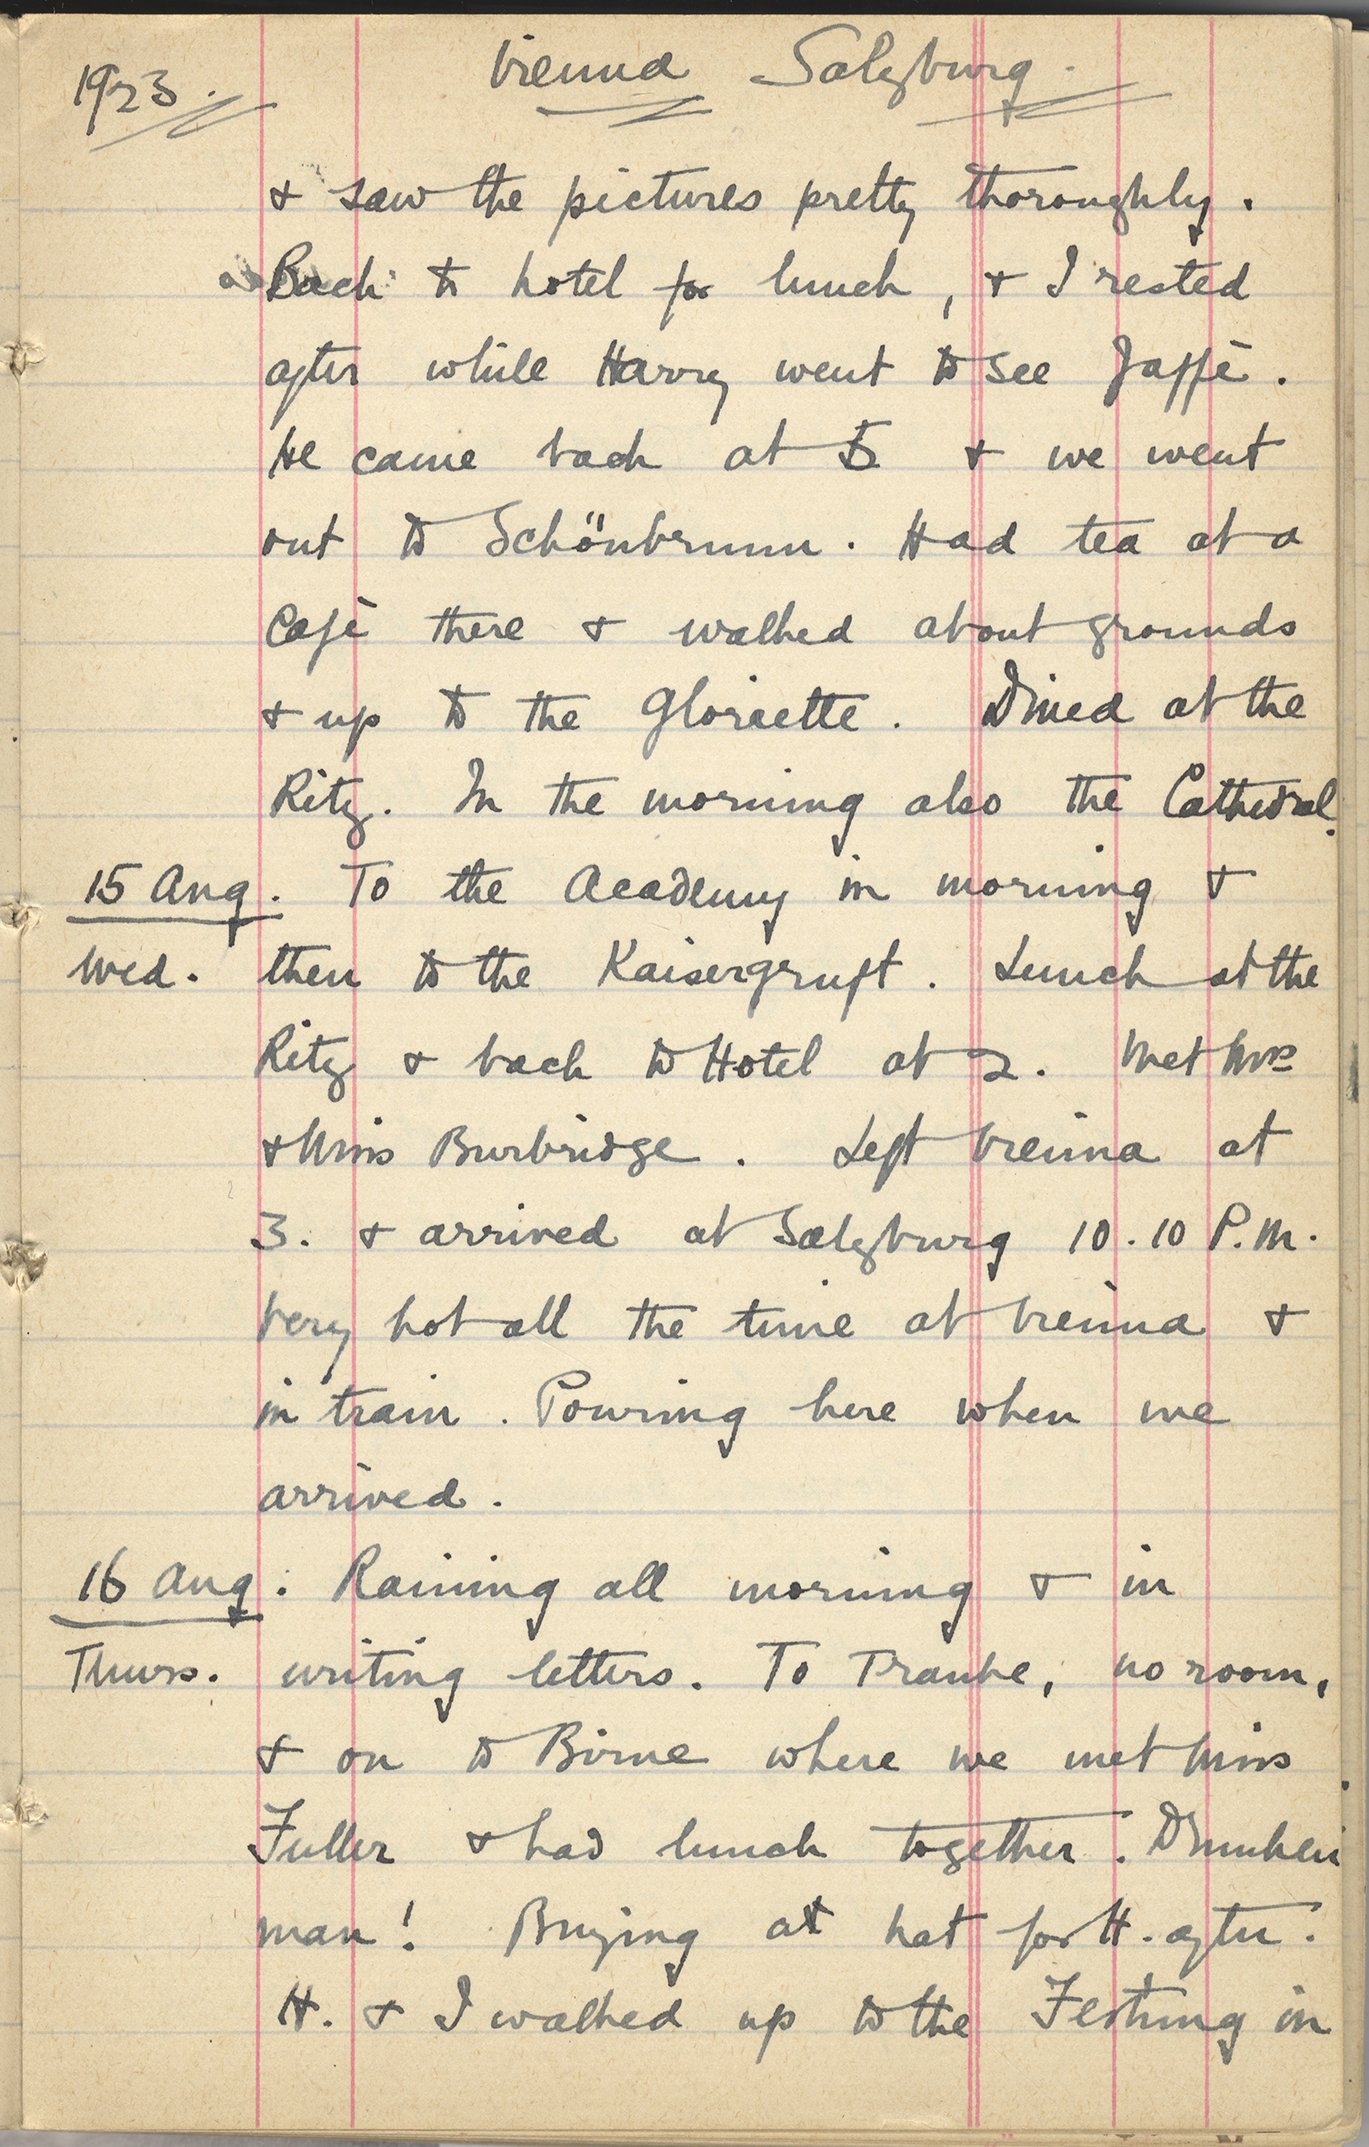 1923. Vienna Salzburg.
& saw the pictures pretty thoroughly.
Back to hotel for lunch, & I rested
after while Harry went to see Jaffé.
He came back at 5 & we went
out to Schönbrunn. Had tea at a
Café there & walked about grounds
& up to the Gloriette. Dined at the
Ritz. In the morning also the Cathedral.
15 Aug. To the Academy in morning &
Wed. then to the Kaisergruft. Lunch at the
Ritz & back to Hotel at 2. Met Mrs
& Miss Burbridge. Left Vienna at
3. & arrived at Salzburg 10.10 P.M.
Very hot all the time at Vienna &
in train. Pouring here when we
arrived.
16 Aug. Raining all morning & in
Thurs. writing letters. To Traube, no room,
& on to Birne where we met Miss
Fuller & had lunch together. Drunken
man! Buying a hat for H. after.
H. & I walked up to the Festung in